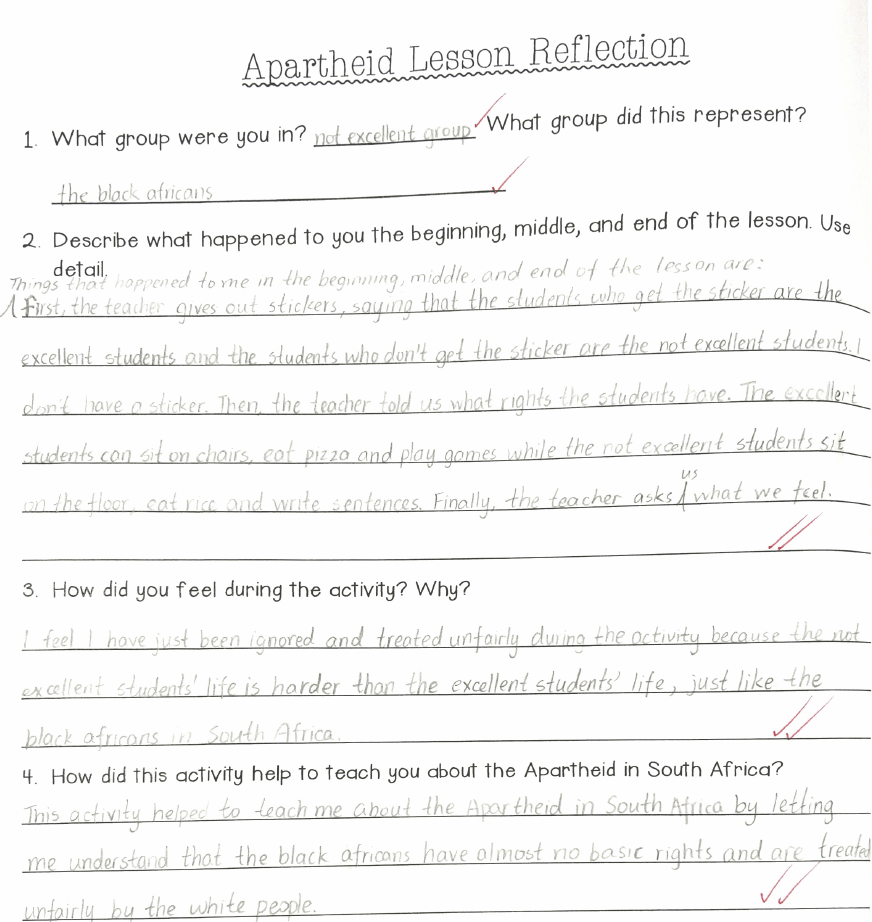 Apartheid Lesson Reflection
1. What group were you in? not excellent group What group did this represent?
the black africans
2. Describe what happened to you the beginning, middle, and end of the lesson. Use
detail.
Things that happened to me in the beginning, middle, and end of the lesson are:
First, the teacher gives out stickers, saying that the students who get the sticker are the
excellent students and the students who don't get the sticker are the not excellent students. I
don't have a sticker. Then, the teacher told us what rights the students have. The excellent
students can sit on chairs, eat pizza and play games while the not excellent students sit
us
on the floor, eat rice and write sentences. Finally, the teacher asks what we feel.
3. How did you feel during the activity? Why?
I feel I have just been ignored and treated unfairly during the activity because the not
excellent students' life is harder than the excellent students' life, just like the
black africans in South Africa.
4. How did this activity help to teach you about the Apartheid in South Africa?
This activity helped to teach me about the Apartheid in South Africa by letting
me understand that the black africans have almost no basic rights and are treated
unfairly by the white people.